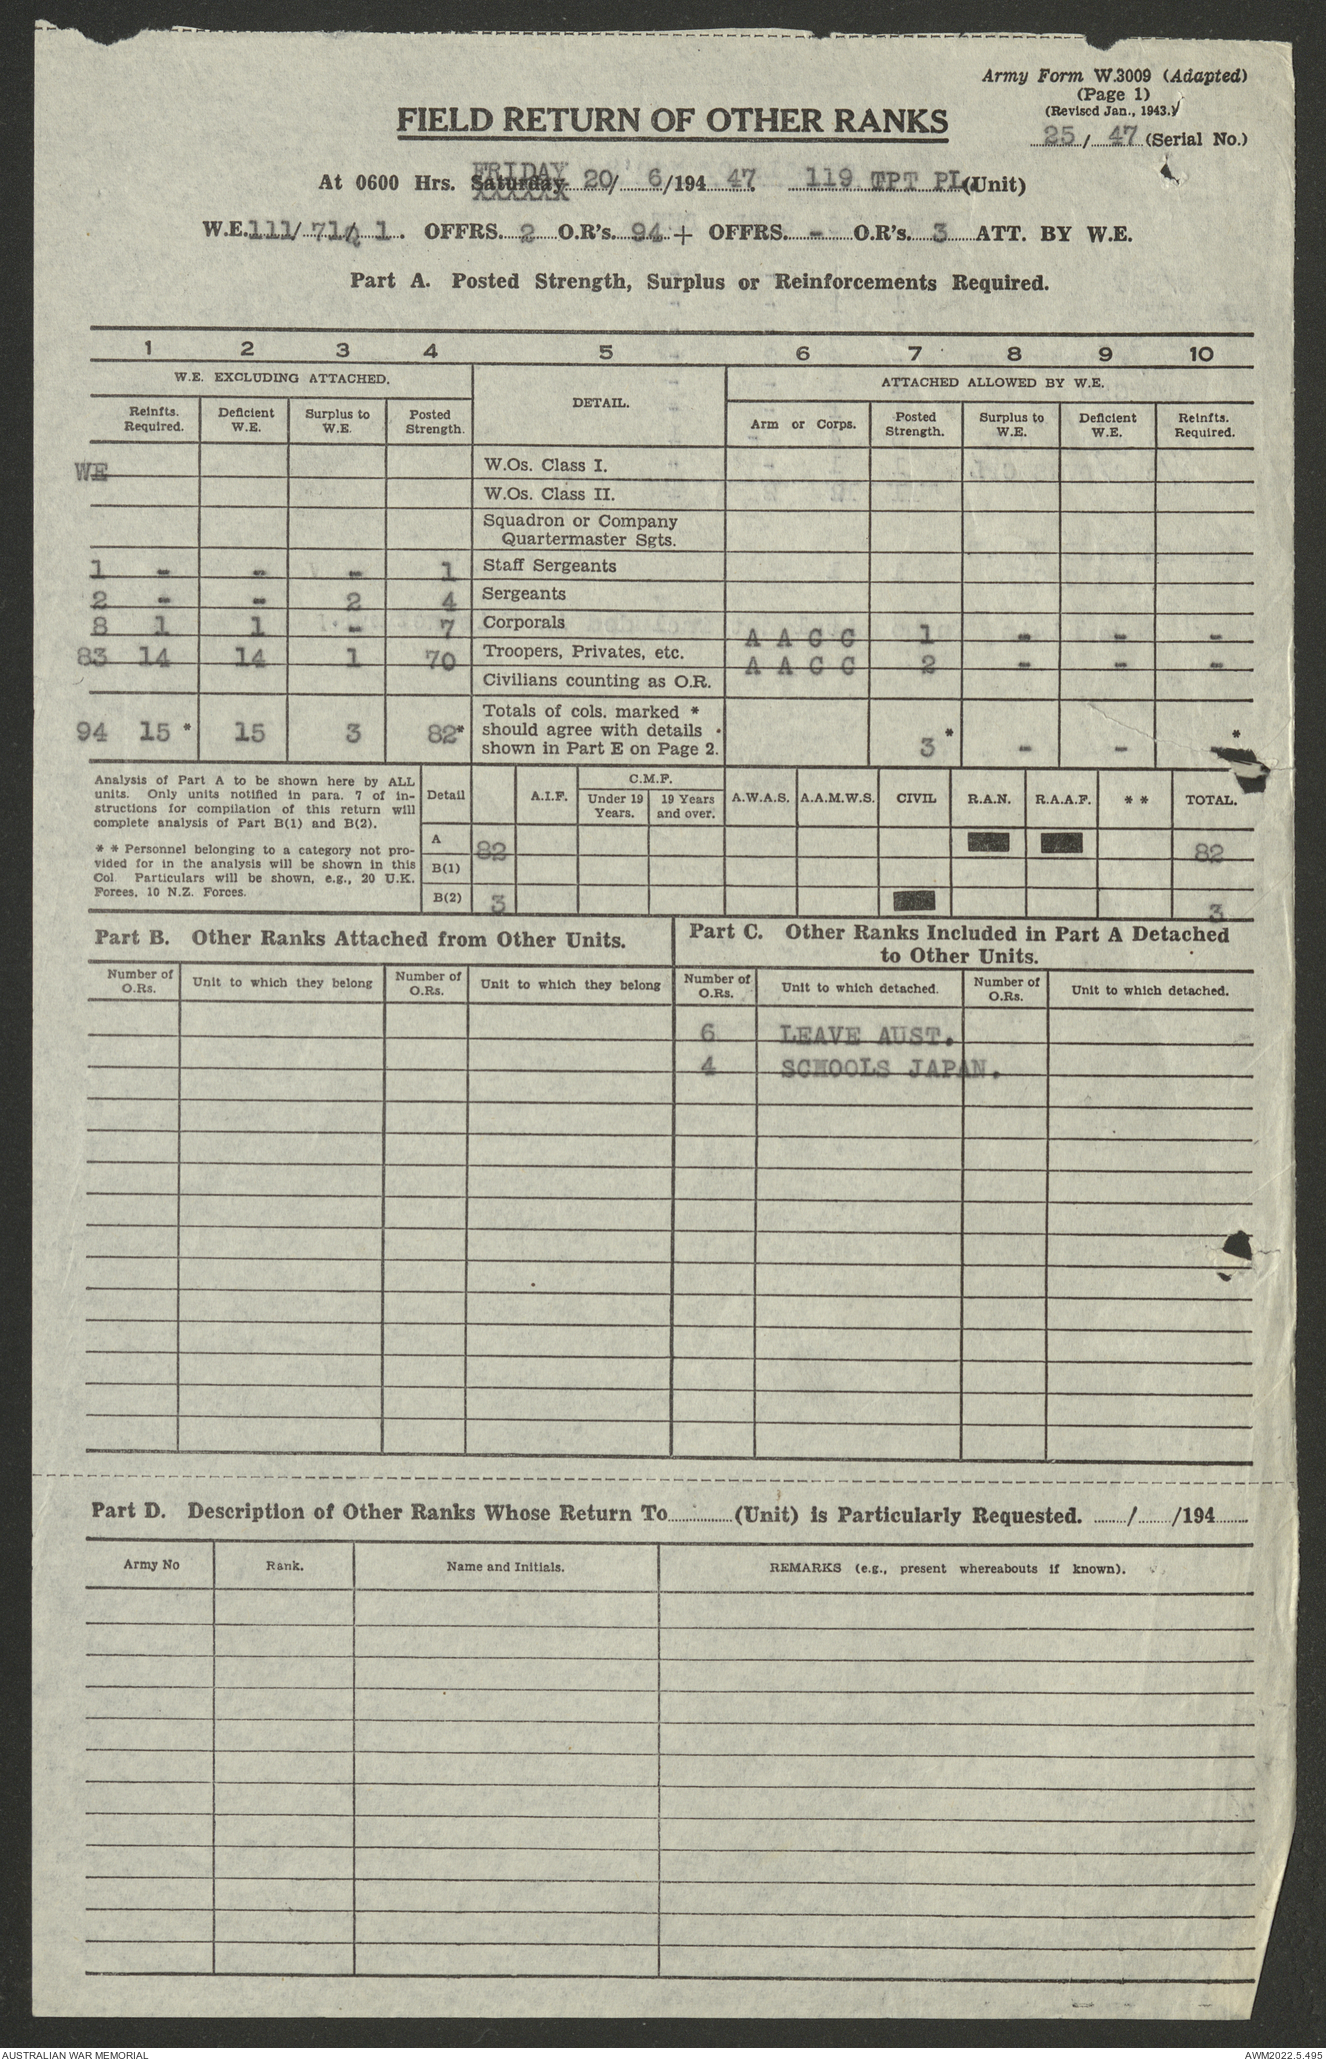 Army Form W.3009 (Adapted)
(Page 1)
(Revised Jan., 1943.)
25 / 47 (Serial No.)
FIELD RETURN OF OTHER RANKS
FRIDAY
At 0600 Hrs. Saturday 20/ 6/194 47 119 TPT PL (Unit)
XXXXXX
W.E. 111/ 71/ 1 . OFFRS. 2 O.R's. 94 + OFFRS. - O.R's. 3 ATT. BY W.E.
Part A. Posted Strength, Surplus or Reinforcements Required.
1 2 3 4 5 6 7 8 9 10
W.E. EXCLUDING ATTACHED. DETAIL. ATTACHED ALLOWED BY W.E.
Reinfts. Required. Deficient W.E. Surplus to W.E. Posted Strength. Arm or Corps. Posted Strength. Surplus to W.E. Deficient W.E. Reinfts. Required.
WE W.Os. Class I.
W.Os. Class II.
Squadron or Company
Quartermaster Sgts.
1 - - - 1 Staff Sergeants
2 - - 2 4 Sergeants
8 1 1 - 7 Corporals A A C C 1 - - -
83 14 14 1 70 Troopers, Privates, etc. A A C C 2 - - -
Civilians counting as O.R.
Totals of cols. marked *
94 15 * 15 3 82* should agree with details 3 * - - *
shown in Part E on Page 2.
Analysis of Part A to be shown here by ALL
units. Only units notified in para. 7 of in-
structions for compilation of this return will
complete analysis of Part B(1) and B(2).
* * Personnel belonging to a category not pro-
vided for in the analysis will be shown in this
Col. Particulars will be shown, e.g., 20 U.K.
Forces, 10 N.Z. Forces.
Detail A.I.F. C.M.F. Under 19 Years. 19 Years and over. A.W.A.S. A.A.M.W.S. CIVIL R.A.N. R.A.A.F. * * TOTAL.
A 82 82
B(1)
B(2) 3 3
Part B. Other Ranks Attached from Other Units.
Part C. Other Ranks Included in Part A Detached
to Other Units.
Number of O.Rs. Unit to which they belong Number of O.Rs. Unit to which they belong Number of O.Rs. Unit to which detached. Number of O.Rs. Unit to which detached.
6 LEAVE AUST.
4 SCHOOLS JAPAN.
Part D. Description of Other Ranks Whose Return To............(Unit) is Particularly Requested. ....../....../194......
Army No Rank. Name and Initials. REMARKS (e.g., present whereabouts if known).
AUSTRALIAN WAR MEMORIAL AWM2022.5.495